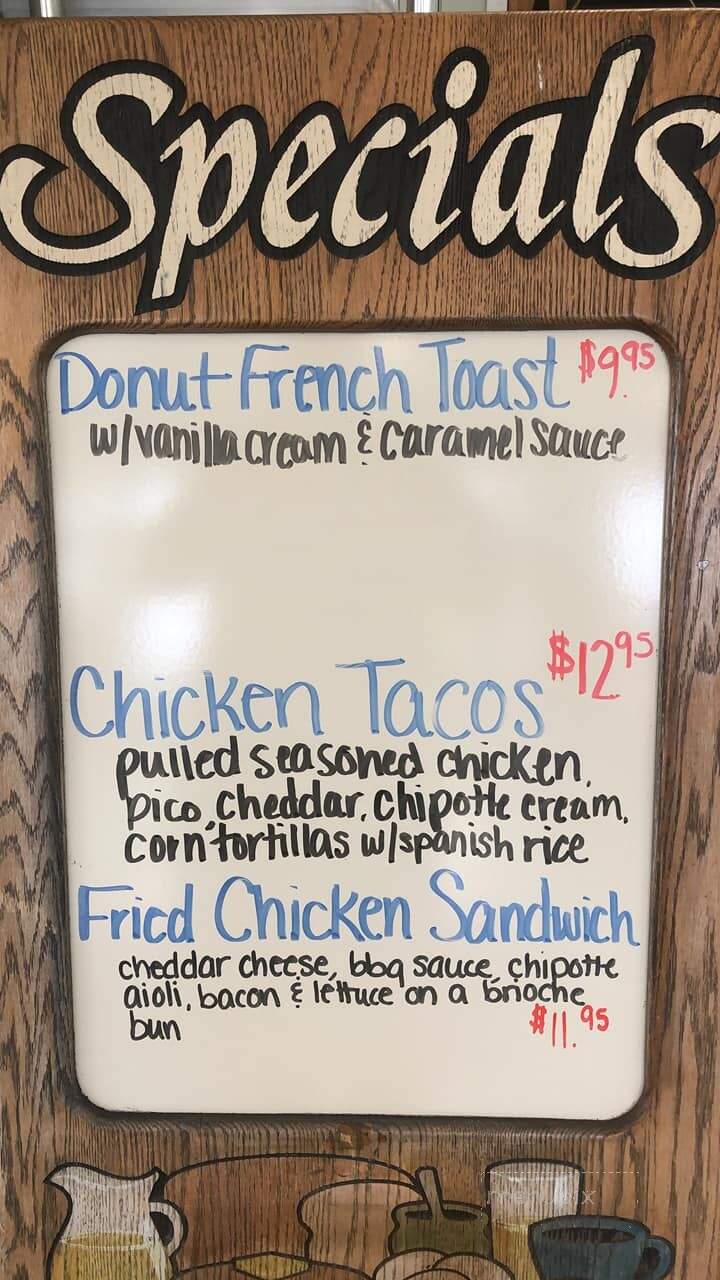 Specials
Donut French Toast $9.95
w/vanilla cream & caramel sauce
Chicken Tacos $12.95
pulled seasoned chicken,
pico, cheddar, chipotle cream,
corn tortillas w/spanish rice
Fried Chicken Sandwich
cheddar cheese, bbq sauce, chipotle
aioli, bacon & lettuce on a brioche
bun $11.95